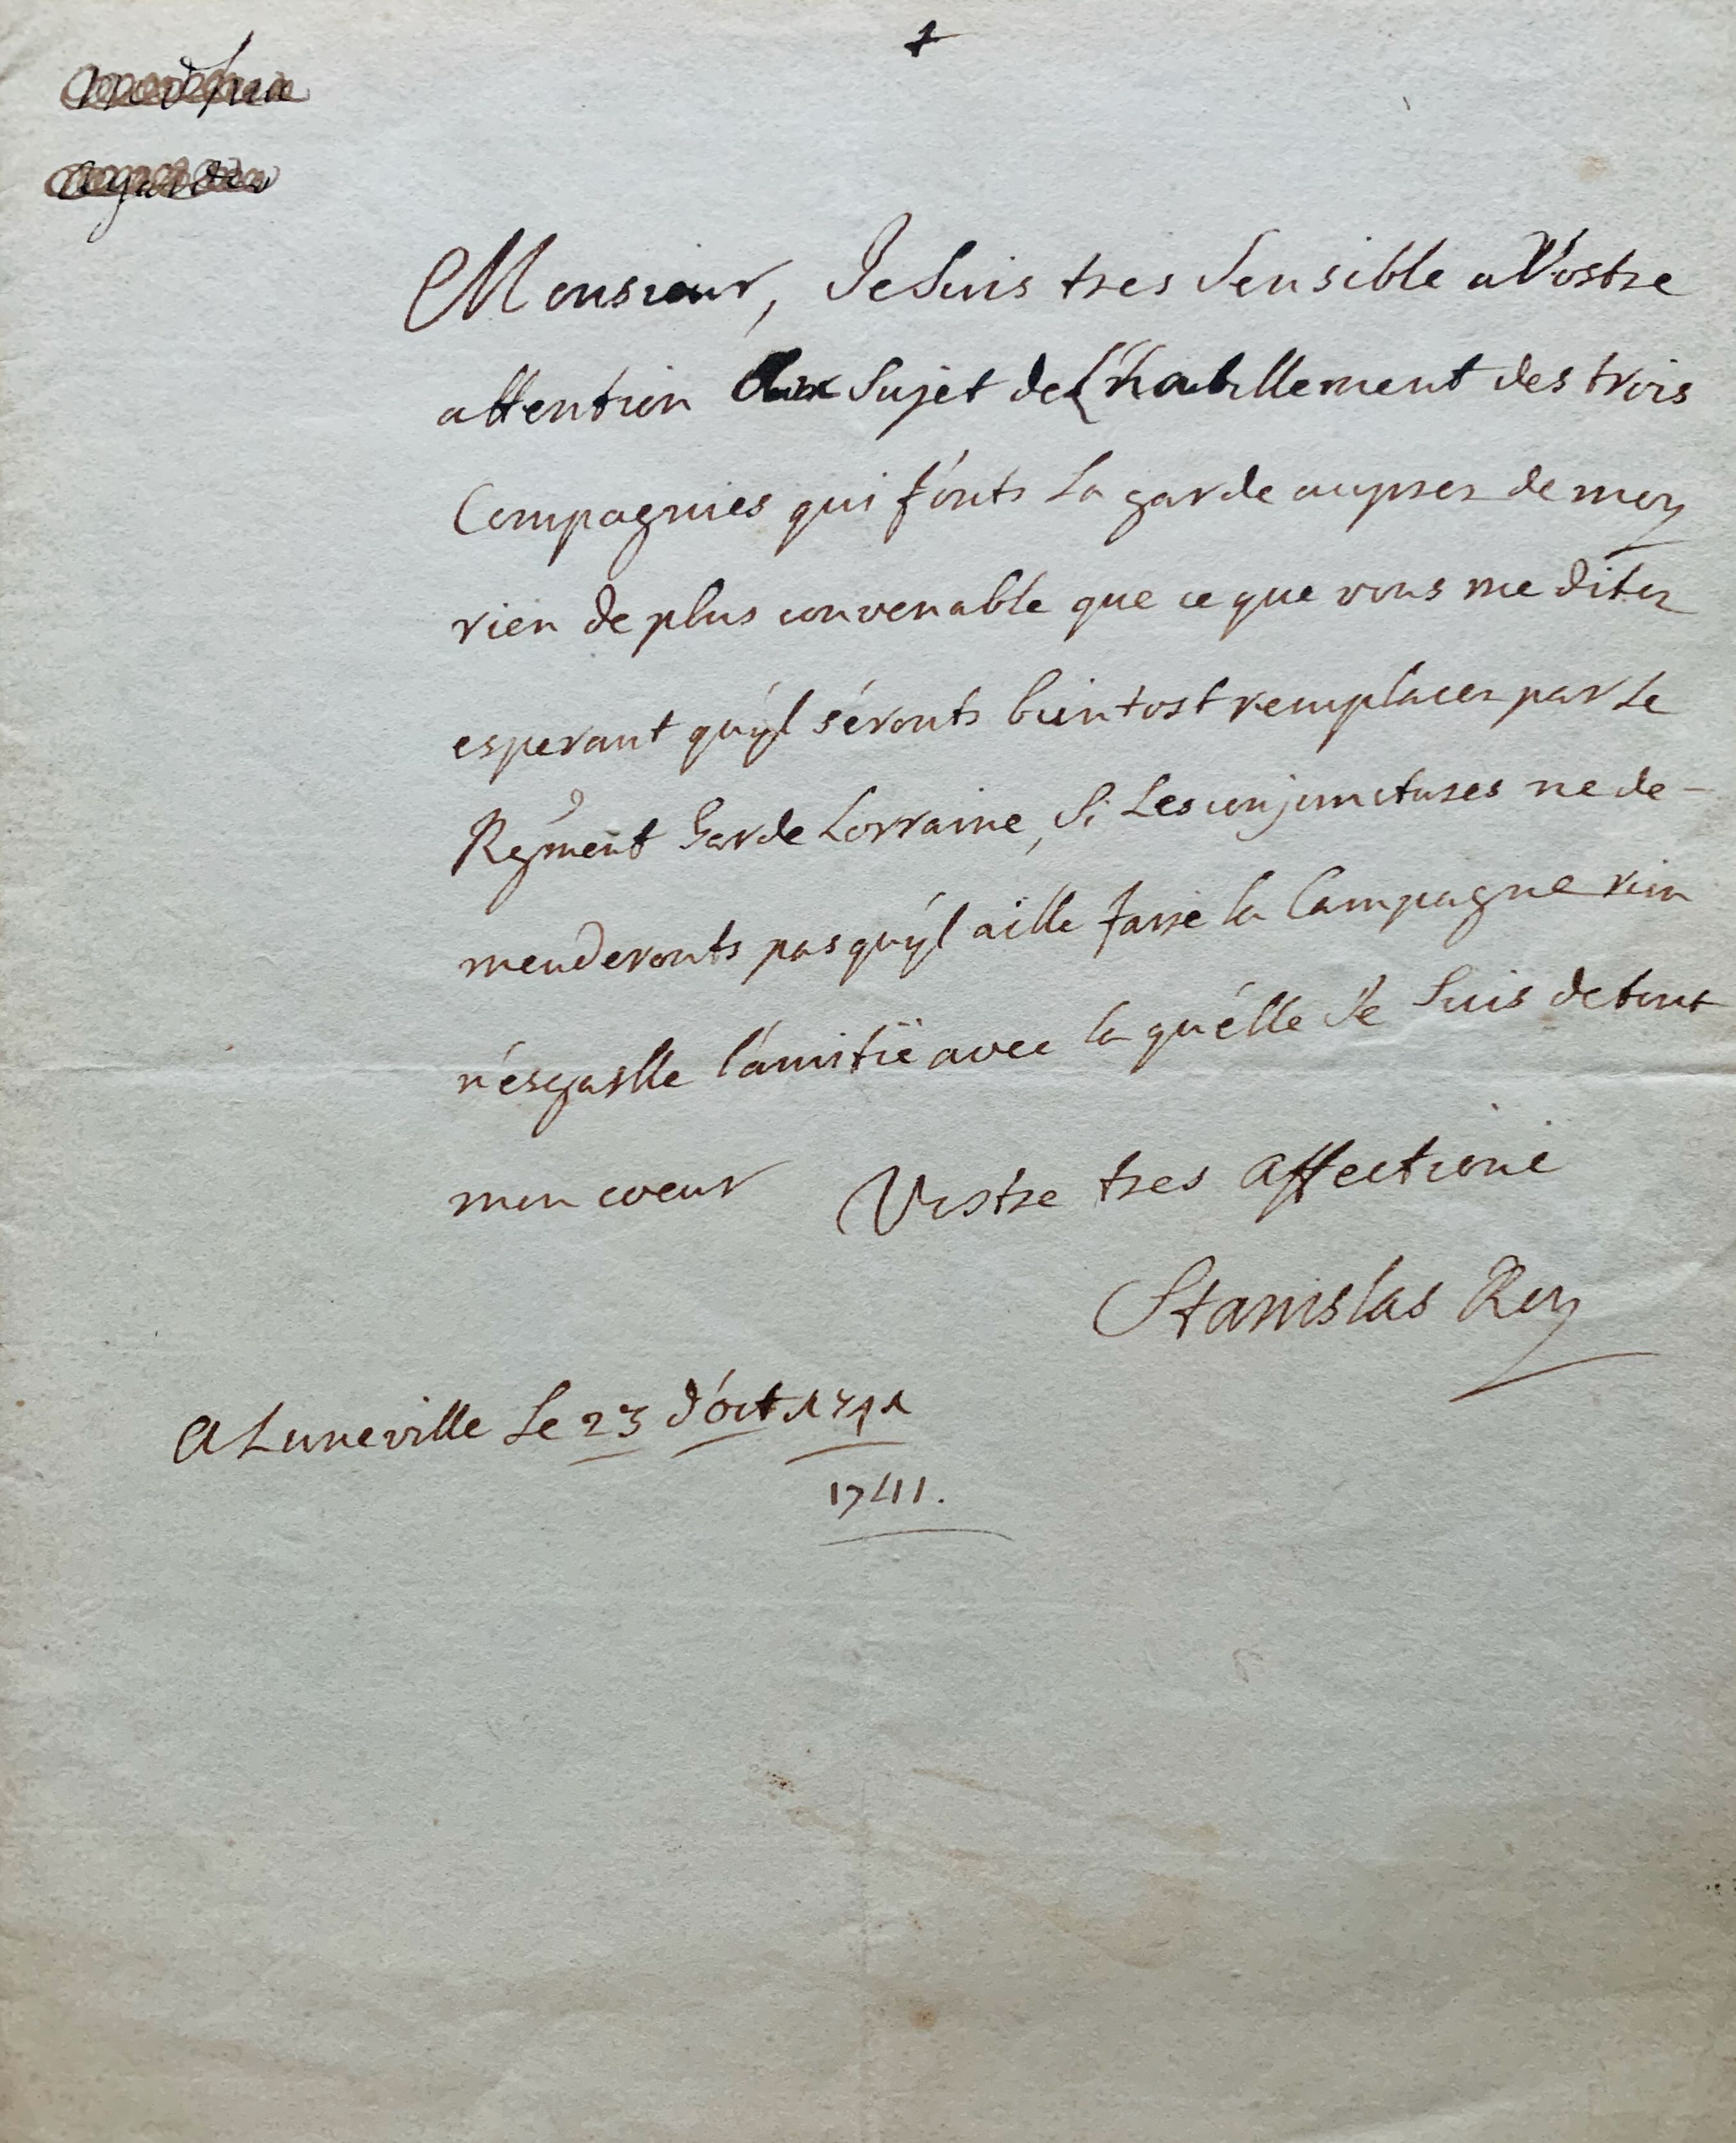 a garder
Monsieur, Je Suis tres Sensible a Vostre
attention au Sujet de L'habillement des trois
Compagnies qui fonts La garde aupres de moy
rien de plus convenable que ce que vous me dites
esperant qu'yl séronts bientost remplacez par Le
Regment Garde Lorraine, Si Les conjonctures ne de-
menderonts pas qu'yl aille faire la Campagne rien
n'ésgaslle l'amitië avec la qu'élle Je Suis de tout
mon coeur Vostre tres affectioné
Stanislas Roy
A Luneville Le 23 d'oct 1741
1741.